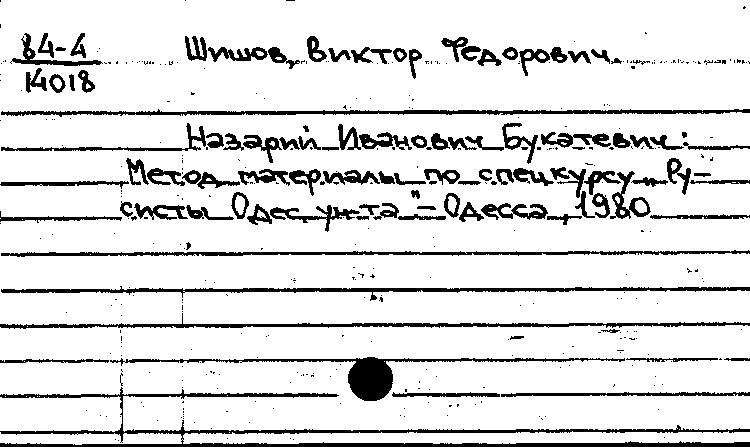 84-4
14018
Шишов, Виктор Федорович.
Назарий Иванович Букатевич:
Метод. материалы по спецкурсу „Ру-
систы Одес. ун-та".– Одесса, 1980